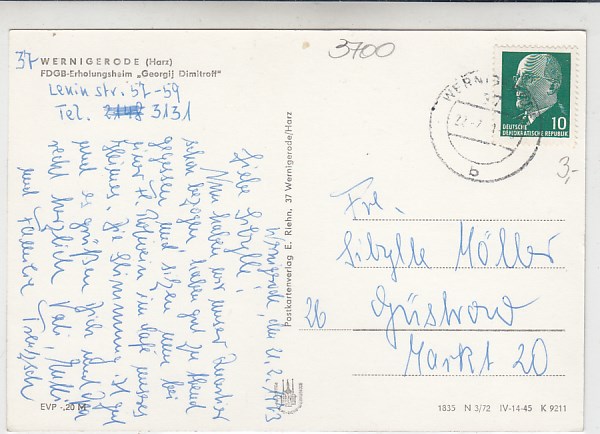 3700
37 WERNIGERODE (Harz)
FDGB-Erholungsheim „Georgij Dimitroff"
Leninstr. 57-59
Tel. 3131
WERNIG
b
DEUTSCHE
DEMOKRATISCHE REPUBLIK
10
3,-
Wernigerode, den 21.2.1973
Liebe Sibylle!
Nun haben wir unser Quartier
schon bezogen, haben gut zu Abend
gegessen und sitzen nun bei
einer Fl. Rotwein im Café unseres
Heimes. Die Stimmung ist gut
und es grüßen Dich und
recht herzlich Vati, Mutti
und Familie
Postkartenverlag E. Riehn, 37 Wernigerode/Harz
Frl.
Sibylle Möller
26 Güstrow
Markt 20
EVP -,20 M
1835 N 3/72 IV-14-45 K 9211